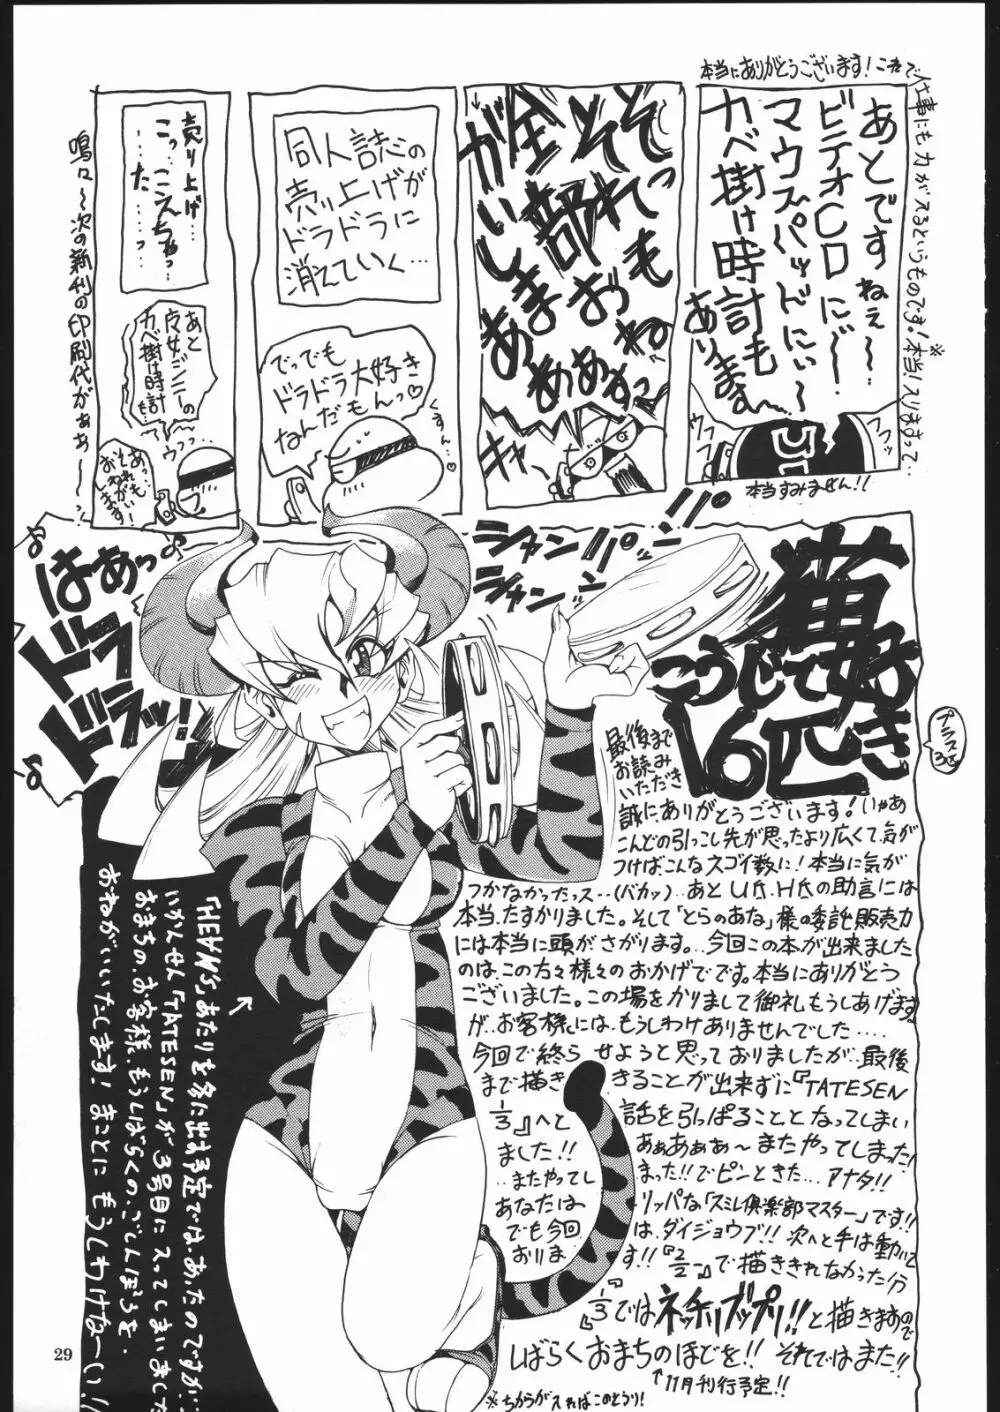 本当にありがとうございます!これで
仕事にも力が入るというものです!本当に入りますって…
あとですねぇ〜〜
ビデオCDにぃ〜
マウスパッドにぃ〜
カベ掛け時計も
あります
ウフ
フフ
本当すみません!!
そそ
れっ
全部
もね
おお
がいしま
ああああっ
キャ
同人誌の
売り上げが
ドラドラに
消えていく…
でっでも
ドラドラ大好き
なんだもんっ♡
くすん…♡
売り上げ…
こっ…ここえちゃっ…
……た………っ
あと
皮女ジニーの
カベ掛け時計
も…
ウウッ…
あっ…
それも
おねがい
します
嗚々〜次の新刊の印刷代がぁぁ〜〜っ!
はあっ
ドドラ
ドラッ!!
シャンパンパン
シャンシャン
猫好き
こうじで
16匹
プラス3匹
最後まで
お読み
いただき
誠にありがとうございます!いゃあ
こんどの引っこし先が思ったより広くて、気が
つけばこんなスゴイ数に!本当に気が
つかなかったっス…(バカッ)…あとU.K.H.K.の助言には
本当、たすかりました。そして「とらのあな」様の委託販売力
には本当に頭がさがります。…今回この本が出来ました
のは、この方々様々のおかげでです。本当にありがとう
ございました。この場をかりまして御礼もうしあげます。
が、お客様には、もうしわけありませんでした……
今回で終らせようと思っておりましたが…最後
まで描ききることが出来ずに『TATESEN
1/3』へと話を引っぱることとなってしまい
ました!!あぁあぁぁ〜またやってしまった!
…またやってしまった!!でピンときた…アナタ!!
あなたはリッパな「スミレ倶楽部マスター」です!!
でも今回は、ダイジョウブ!!次へと手は動いて
おります!!『2/2』で描ききれなかった分
『1/3』ではネッチリブップリ!!と描きますので
しばらくおまちのほどを!!それではまた!!
↑11月刊行予定!!
※ちからが入ればこのとうり!
「HEAWS」あたりを多に出す予定では、あったのですが…
いかんせん「TATESEN」が3号目に入ってしまいました
おまちの、お客様、もうしばらくの、ごしんぼうを
おねがいいたします!まことにもうしわけな〜い!!
29